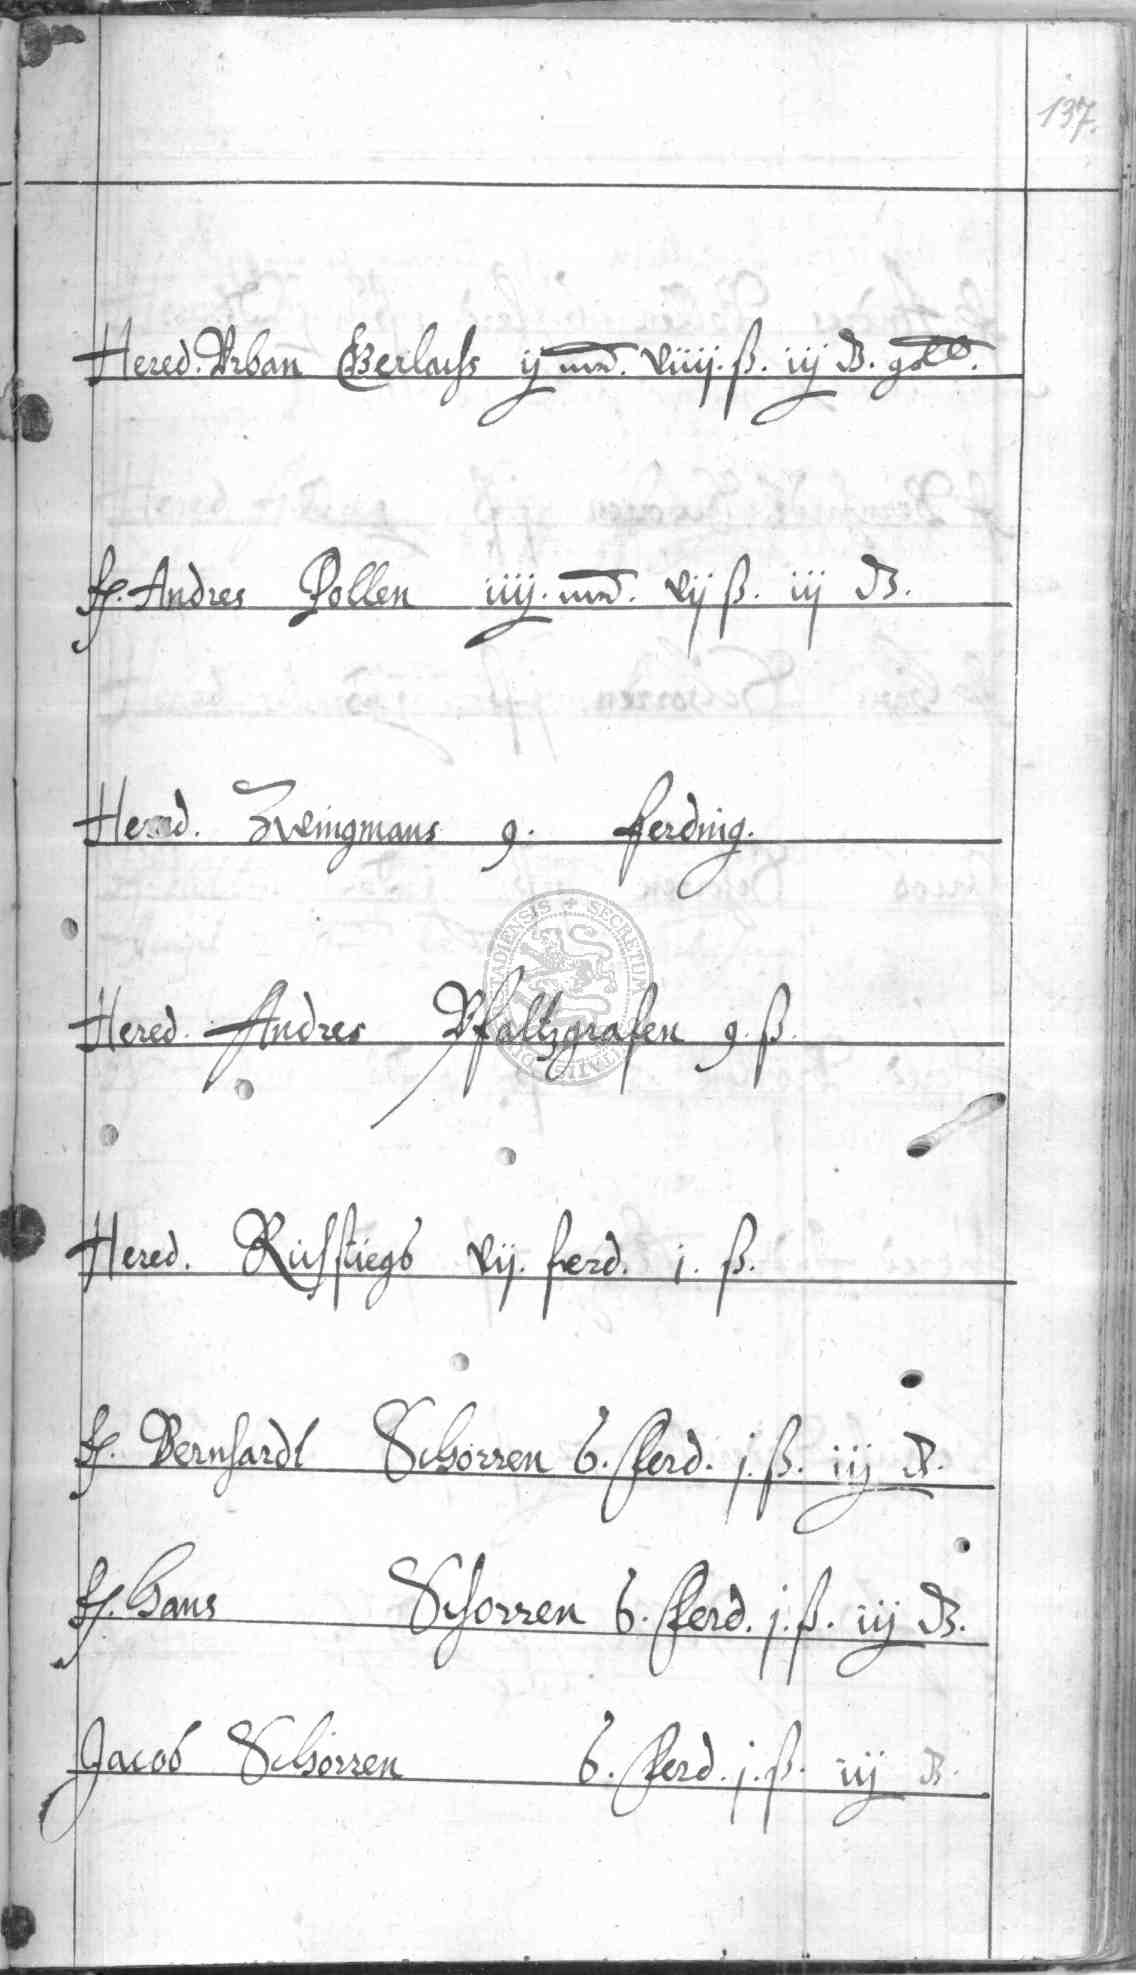 137.
Hered. Vrban Gerlachs ij md. viiij. ß. iij d. gold.
H. Andres Pollen iiij. md. vij ß. iij d.
Hered. Zwingmans 9. ferding.
Hered. Andres Pfaltzgrafen 9. ß.
Hered. Ruhstiegs vij. ferd. j. ß.
H. Bernhardt Schorren 6. ferd. j. ß. iij d.
H. Hans Schorren 6. ferd. j. ß. iij d.
Jacob Schorren 6. ferd. j. ß. iij d.